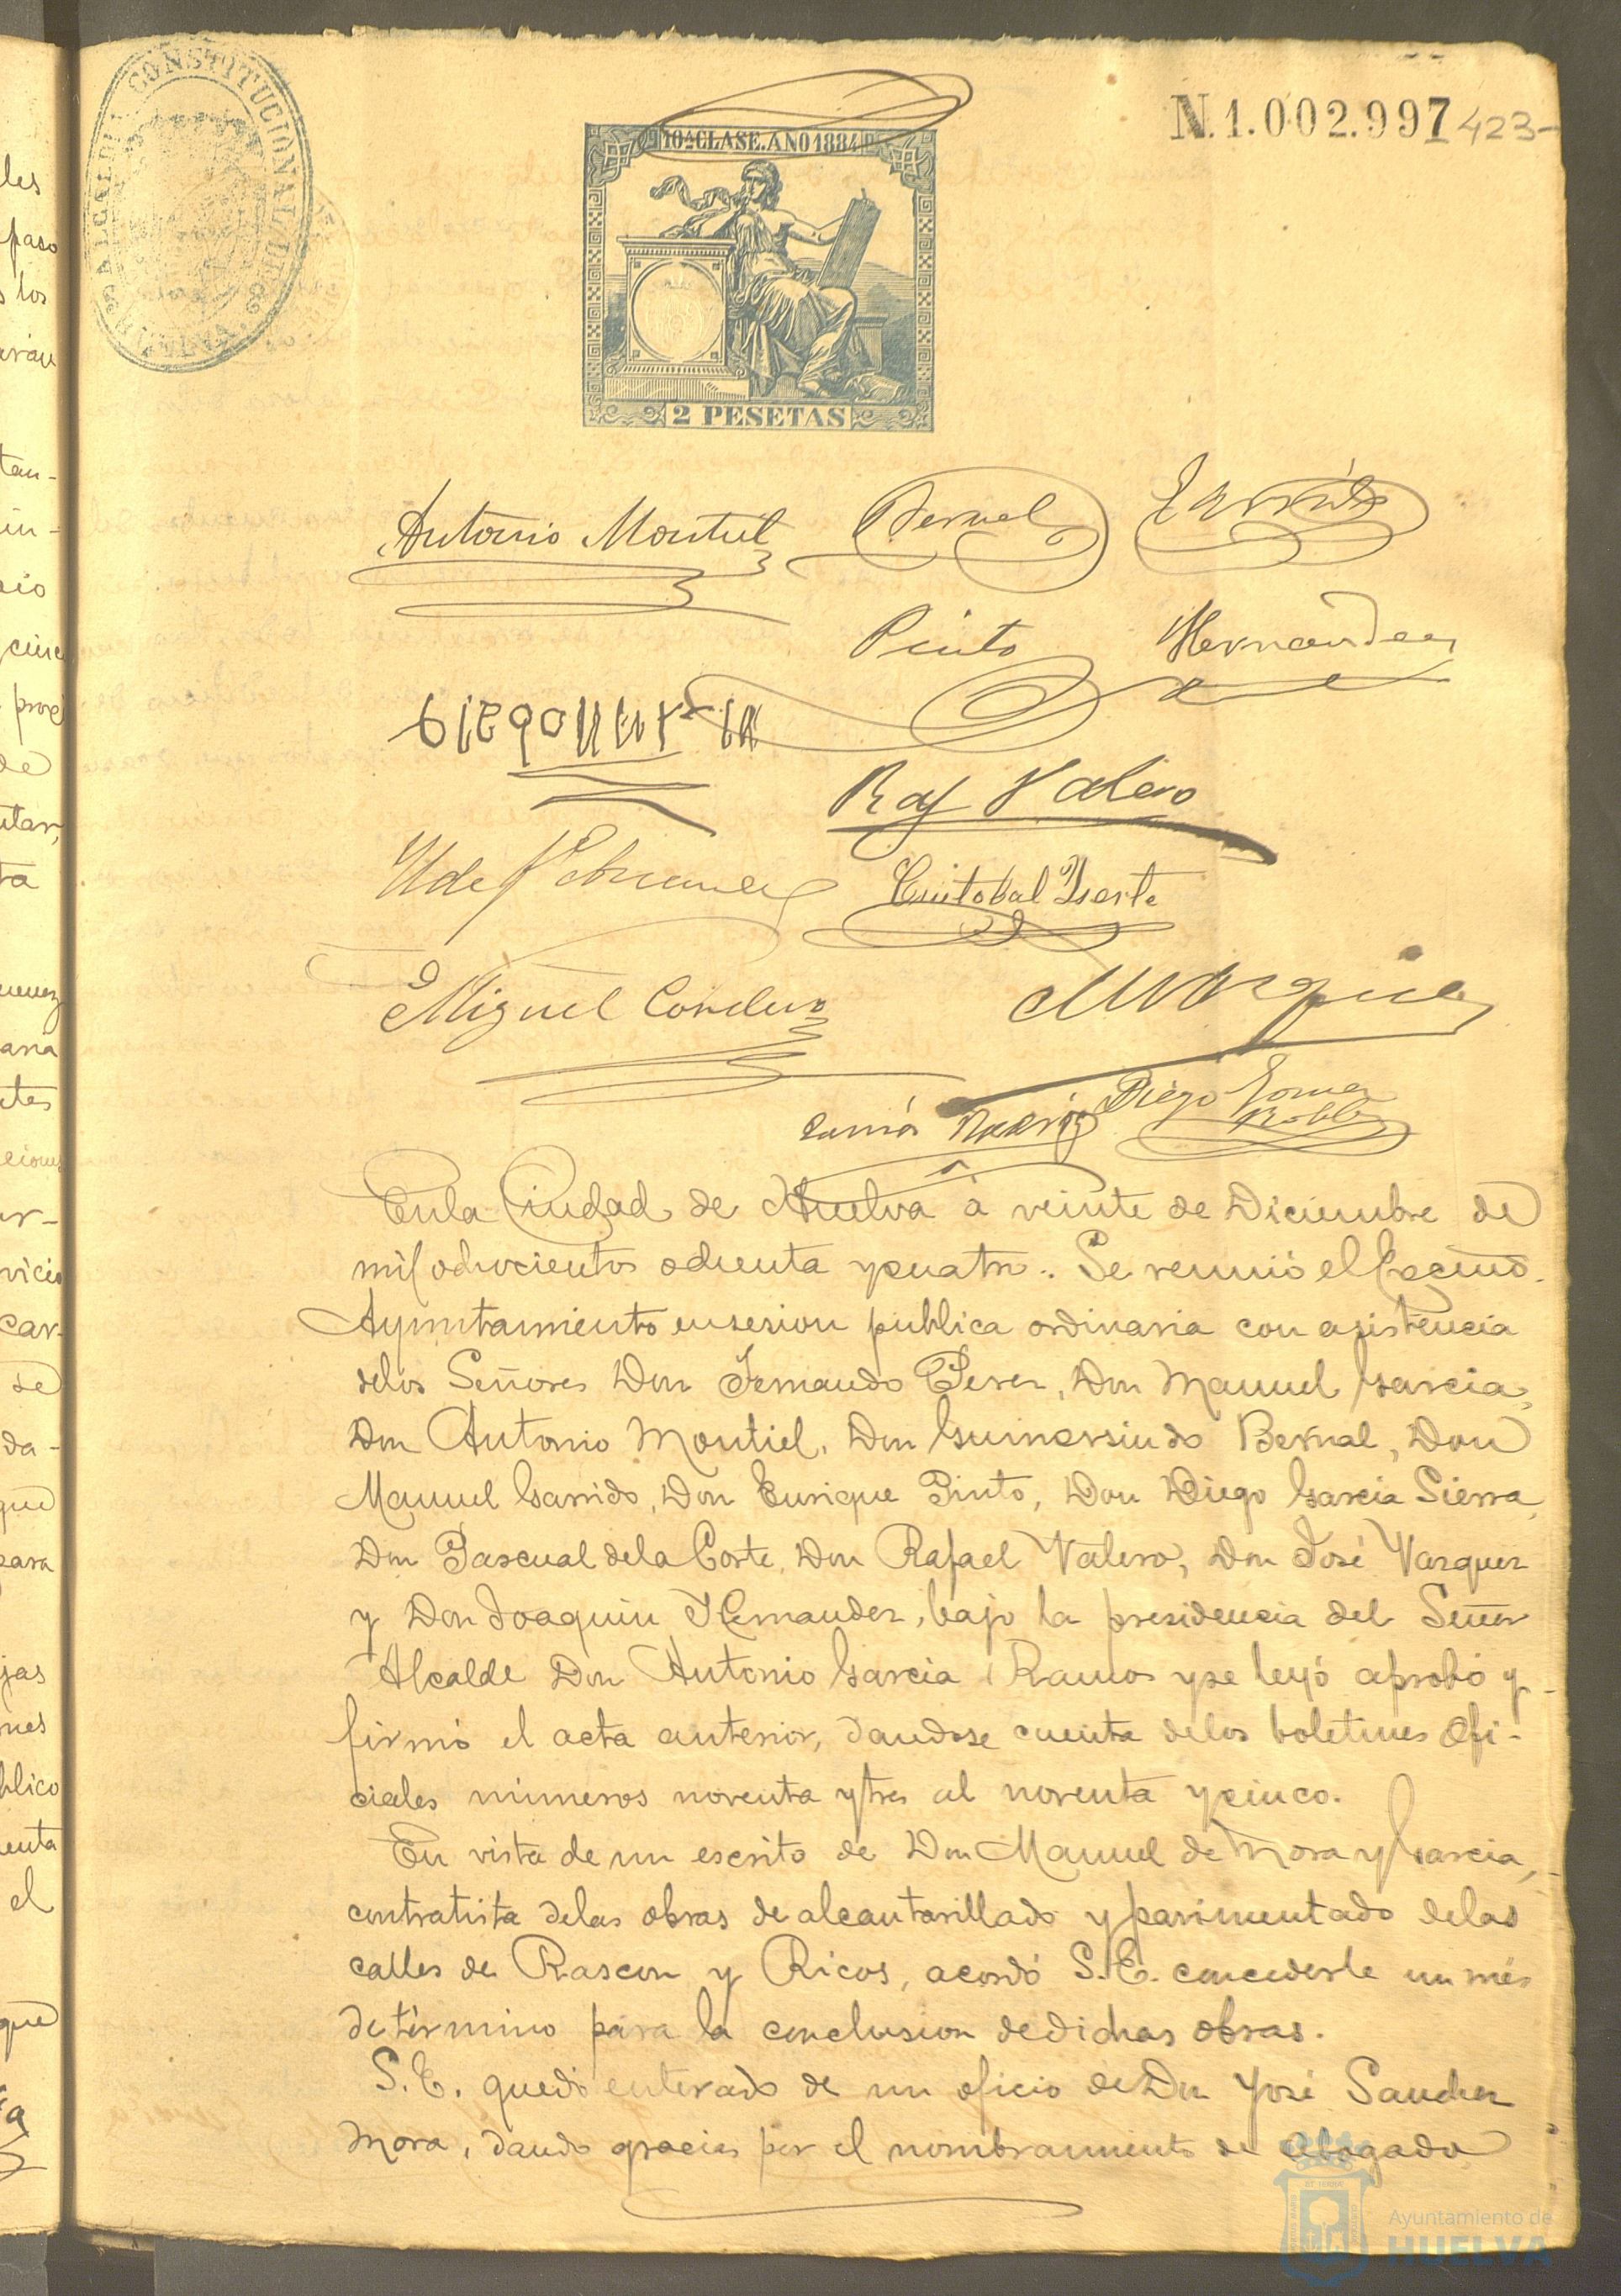 ALCALDIA CONSTITUCIONAL
HUELVA
N.1.002.997 423-
10ª CLASE. AÑO 1884
2 PESETAS
Antonio Montiel Bernal Garrido
Pinto Hernandez
Raf Valero
Cristobal Yserte
Miguel Cordero Marquez
Diego Gomez
Robles
En la Ciudad de Huelva á veinte de Diciembre de
mil ochocientos ochenta y cuatro.. Se reunió el Excmo.
Ayuntamiento en sesion publica ordinaria con asistencia
de los Señores Don Fernando Perez, Don Manuel Garcia,
Don Antonio Montiel, Don Gumersindo Bernal, Don
Manuel Garrido, Don Enrique Pinto, Don Diego Garcia Sierra,
Don Pascual de la Corte, Don Rafael Valero, Don José Vazquez
y Don Joaquin Hernandez, bajo la presidencia del Señor
Alcalde Don Antonio Garcia Ramos y se leyó aprobó y
firmó el acta anterior, dandose cuenta de los boletines ofi-
ciales números noventa y tres al noventa y cinco.
En vista de un escrito de Don Manuel de Mora y Garcia,
contratista de las obras de alcantarillado y pavimentado de las
calles de Rascon y Ricos, acordó S.E. concederle un més
de término para la conclusion de dichas obras.
S.E. quedó enterado de un oficio de Don José Sanchez
Mora, dando gracias por el nombramiento de Abogado
Ayuntamiento de
HUELVA